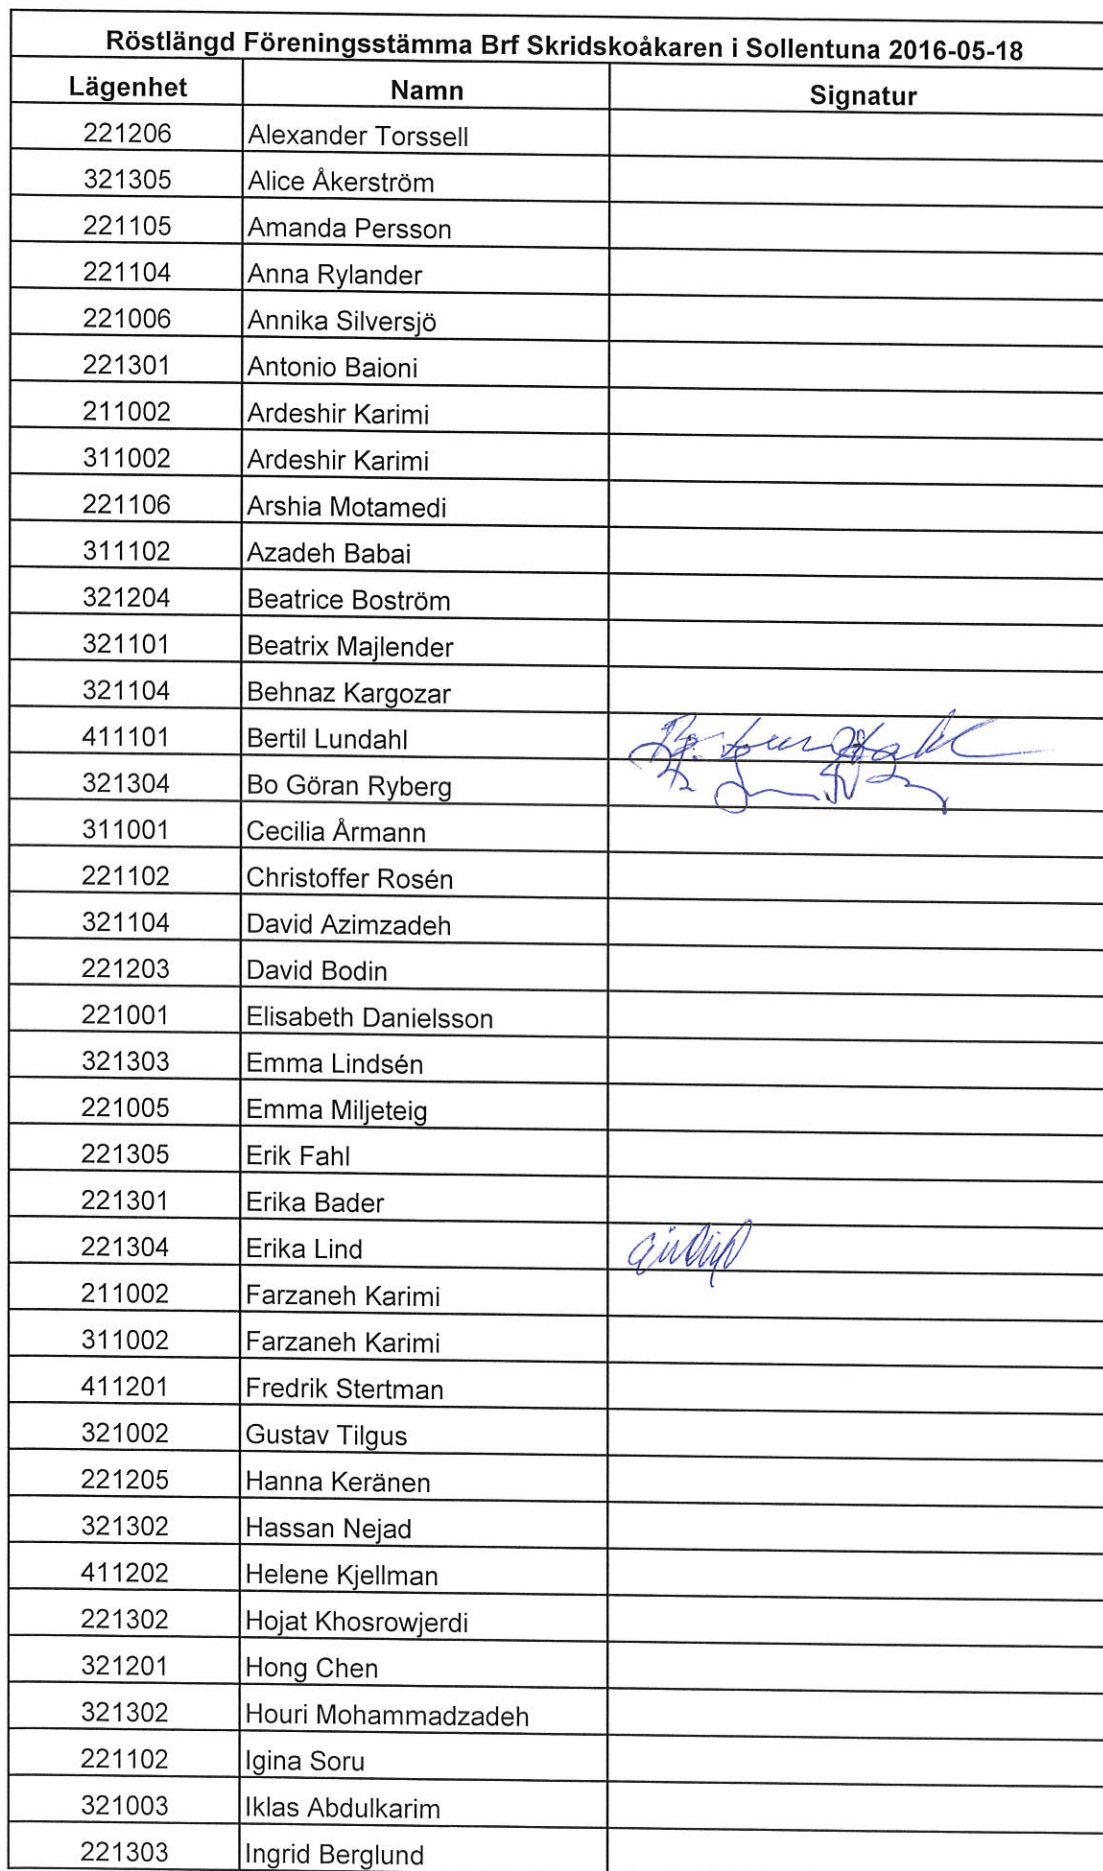 Röstlängd Föreningsstämma Brf Skridskoåkaren i Sollentuna 2016-05-18
Lägenhet Namn Signatur
221206 Alexander Torssell
321305 Alice Åkerström
221105 Amanda Persson
221104 Anna Rylander
221006 Annika Silversjö
221301 Antonio Baioni
211002 Ardeshir Karimi
311002 Ardeshir Karimi
221106 Arshia Motamedi
311102 Azadeh Babai
321204 Beatrice Boström
321101 Beatrix Majlender
321104 Behnaz Kargozar
411101 Bertil Lundahl
321304 Bo Göran Ryberg
311001 Cecilia Årmann
221102 Christoffer Rosén
321104 David Azimzadeh
221203 David Bodin
221001 Elisabeth Danielsson
321303 Emma Lindsén
221005 Emma Miljeteig
221305 Erik Fahl
221301 Erika Bader
221304 Erika Lind
211002 Farzaneh Karimi
311002 Farzaneh Karimi
411201 Fredrik Stertman
321002 Gustav Tilgus
221205 Hanna Keränen
321302 Hassan Nejad
411202 Helene Kjellman
221302 Hojat Khosrowjerdi
321201 Hong Chen
321302 Houri Mohammadzadeh
221102 Igina Soru
321003 Iklas Abdulkarim
221303 Ingrid Berglund